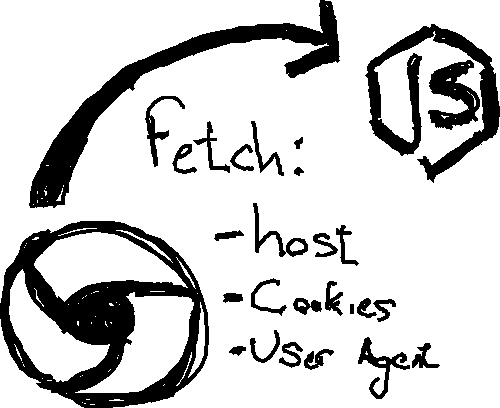 JS
Fetch:
- host
- Cookies
- User Agent